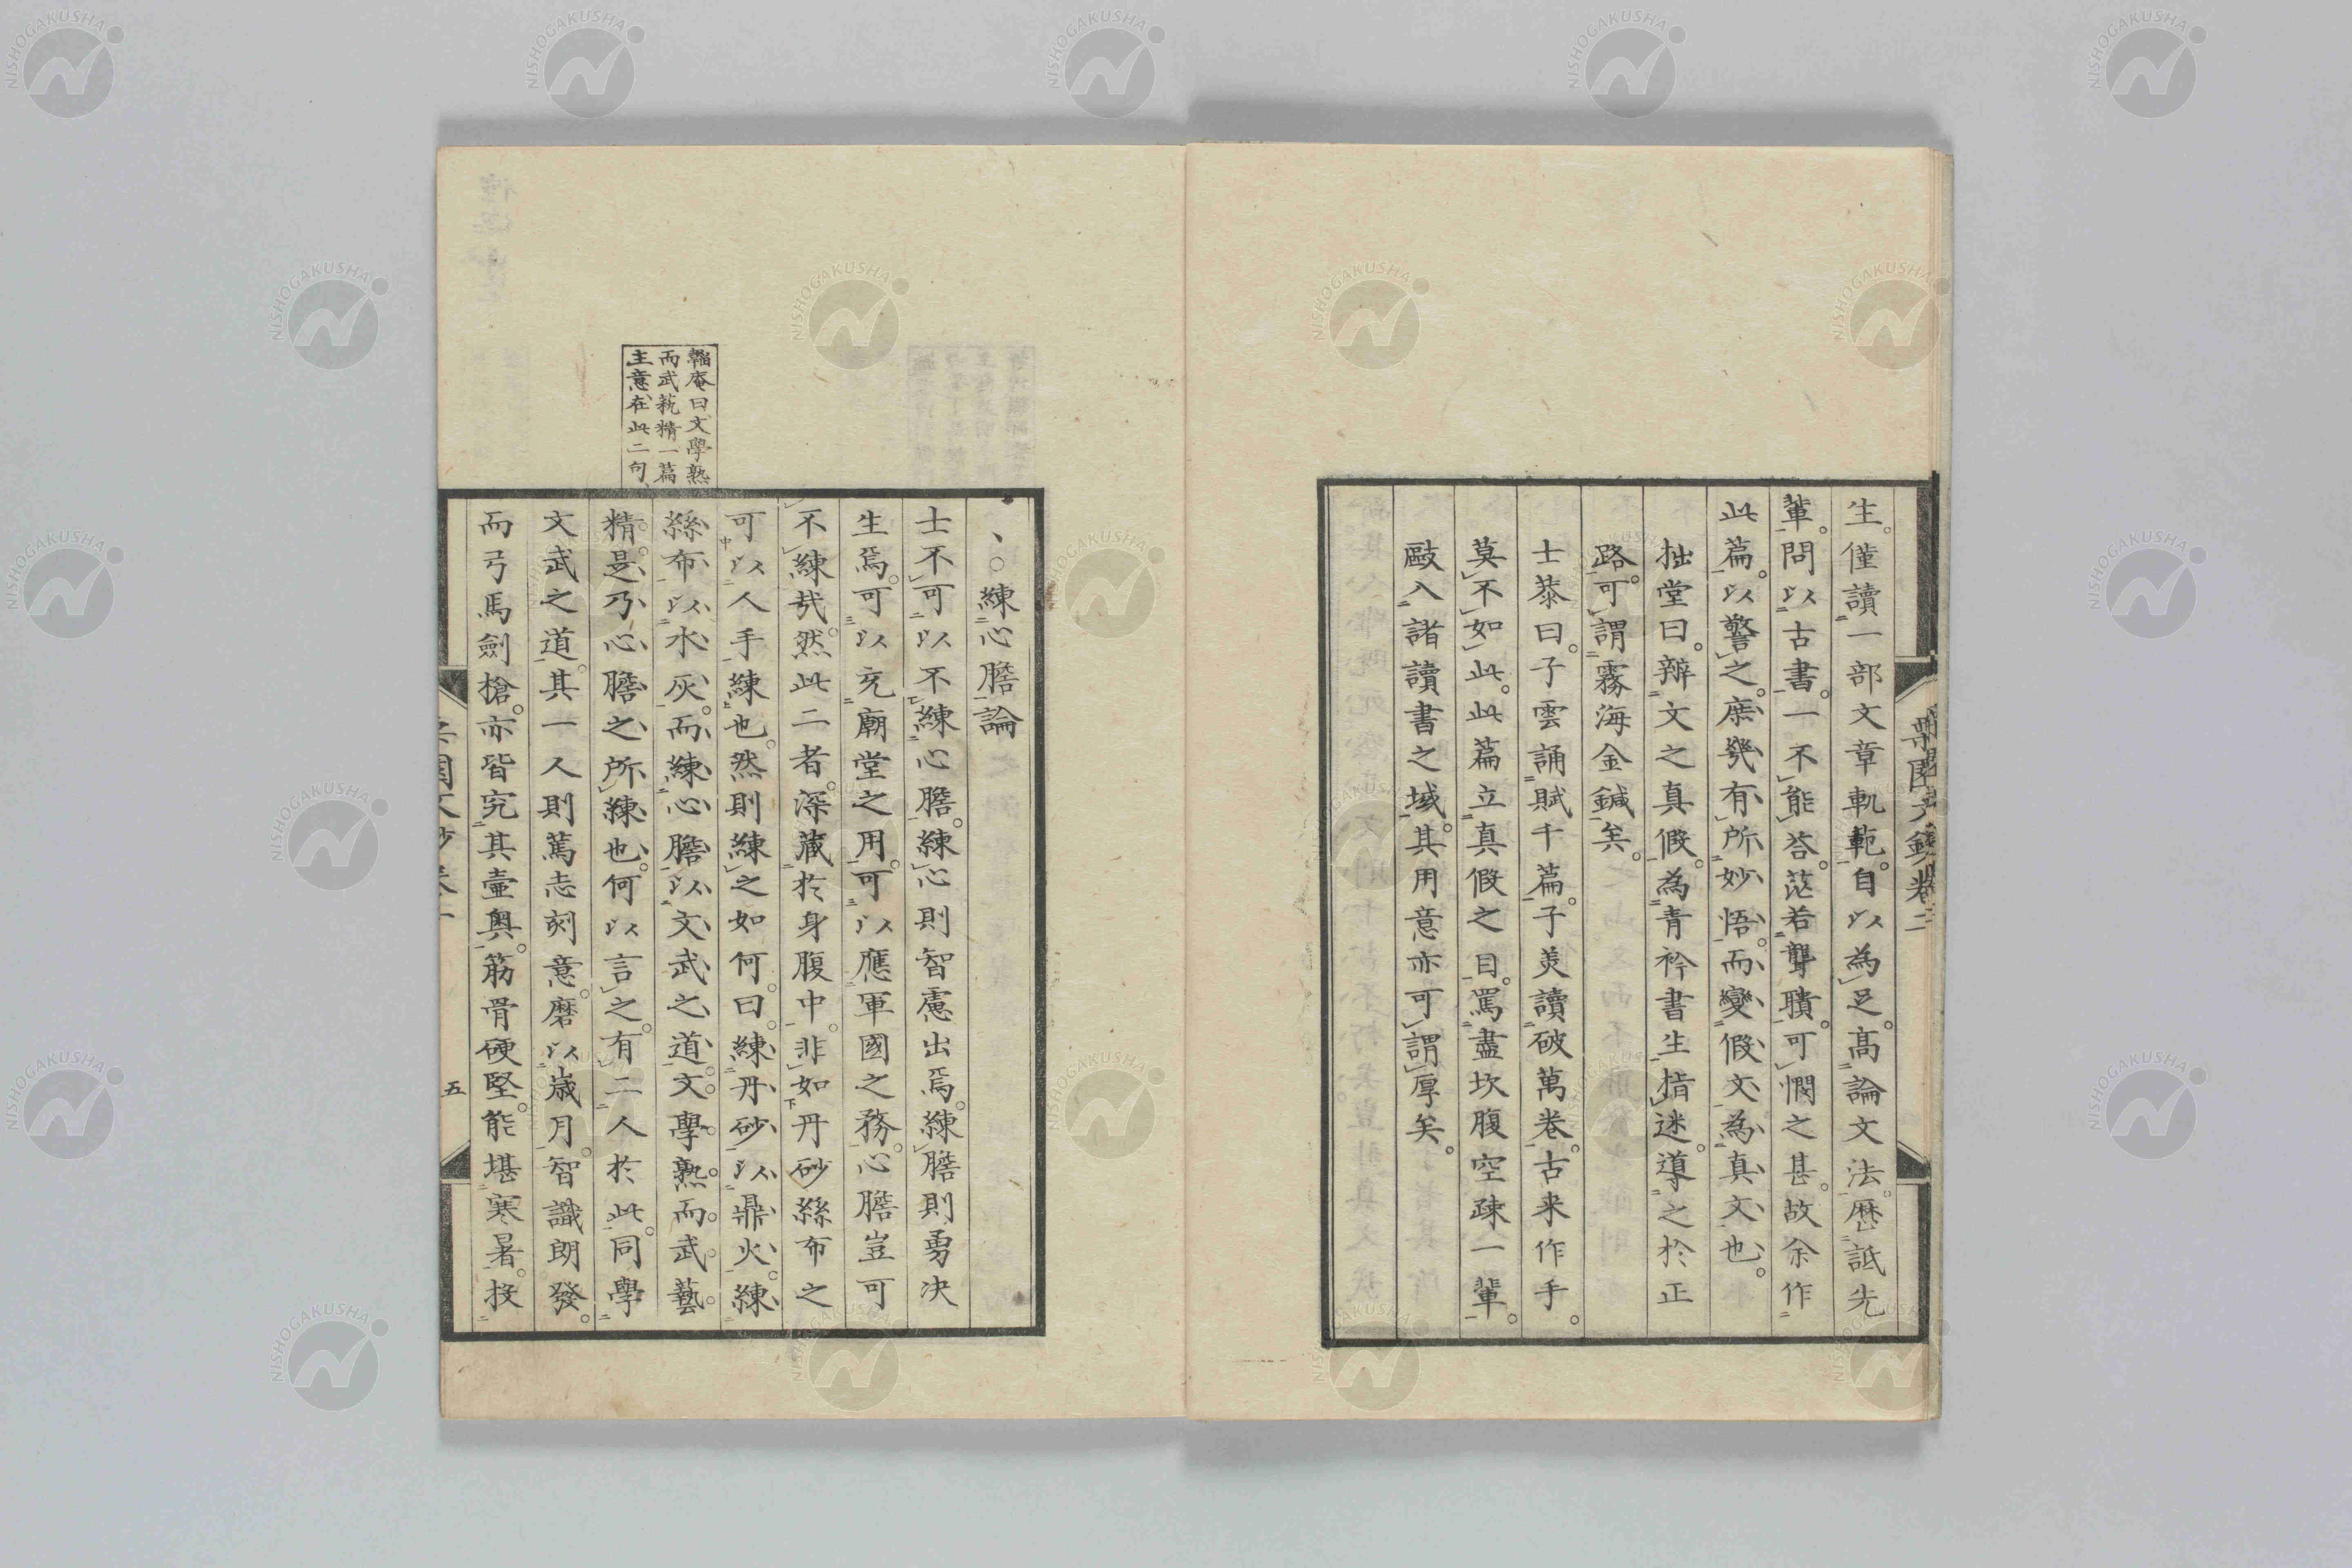 生。僅讀一部文章軌範。自以為足。高論文法。歴詆先
輩。問以古書。一不能荅。茫若聾聵。可憫之甚。故余作
此篇。以警之。庶幾有所妙悟。而變假文為真文也。
拙堂曰。辨文之真假。為青衿書生指迷。導之於正
路。可謂霧海金鍼矣。
士恭曰。子雲誦賦千篇。子美讀破萬卷。古来作手。
莫不如此。此篇立真假之目。罵盡坎腹空疎一輩。
敺入諸讀書之域。其用意亦可謂厚矣。
練心膽論
士不可以不練心膽。練心則智慮出焉。練膽則勇決
生焉。可以充廟堂之用。可以應軍國之務。心膽豈可
不練哉。然此二者。深藏於身腹中。非如丹砂絲布之
可以人手練也。然則練之如何。曰。練丹砂以鼎火。練
絲布以水灰。而練心膽以文武之道。文學熟。而武藝
精。是乃心膽之所練也。何以言之。有二人於此。同學
文武之道。其一人則篤志刻意。磨以歳月。智識朗發。
而弓馬劍槍。亦皆究其壷奥。筋骨硬堅。能堪寒暑。投
韜庵曰、文學熟
而武藝精一篇
主意在此二句、
五
NISHOGAKUSHA